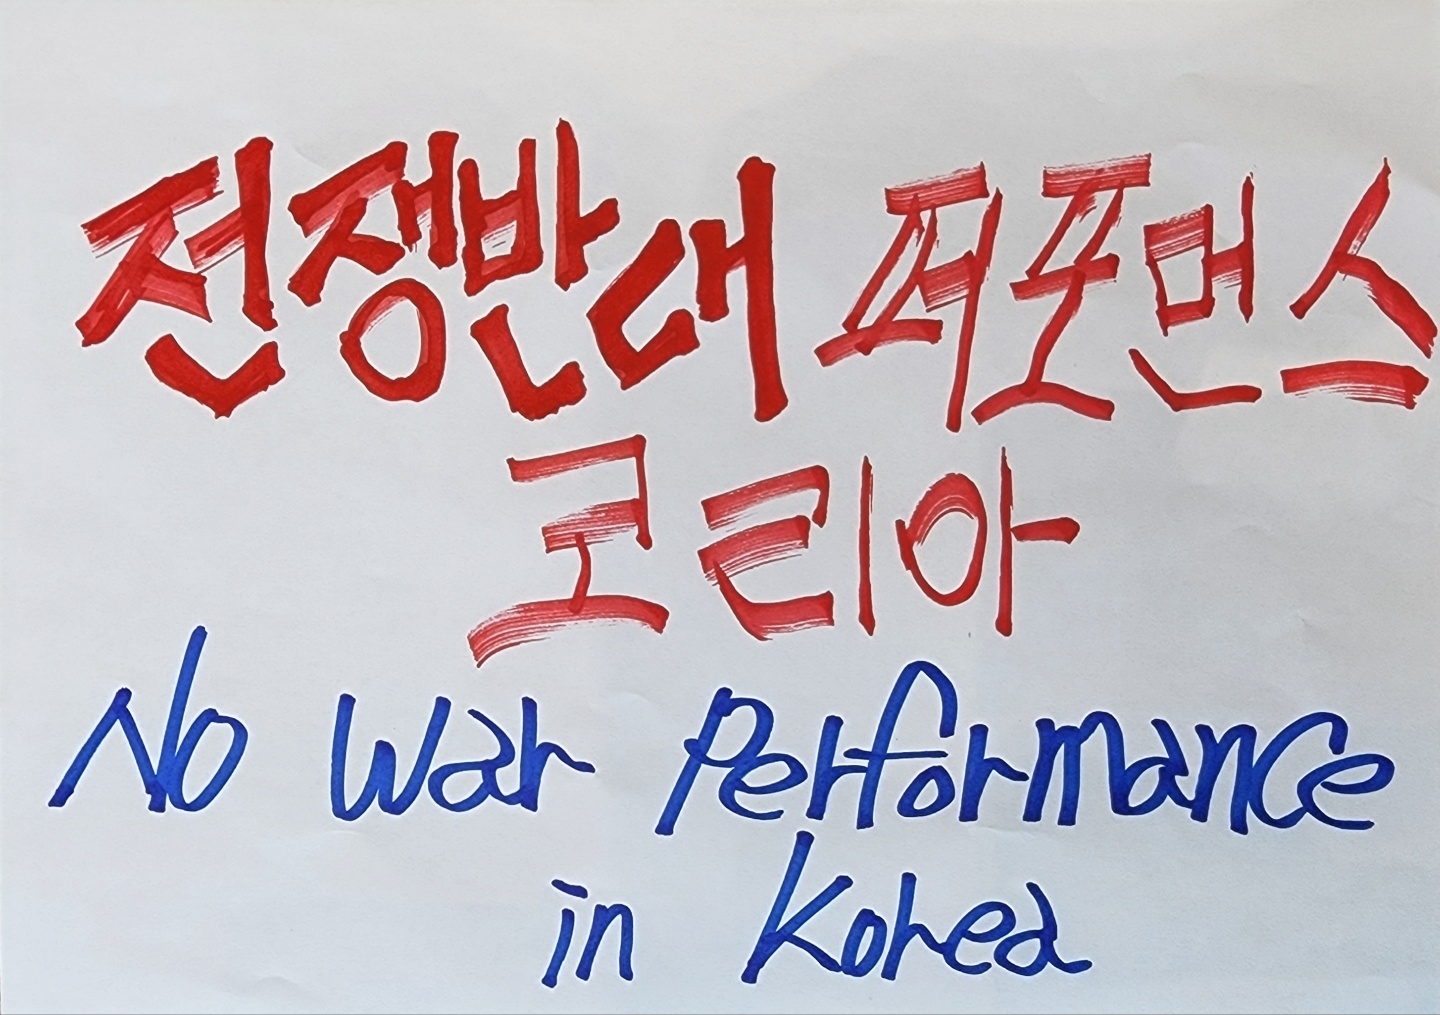 전쟁반대 퍼포먼스
코리아
No war Performance
in Korea